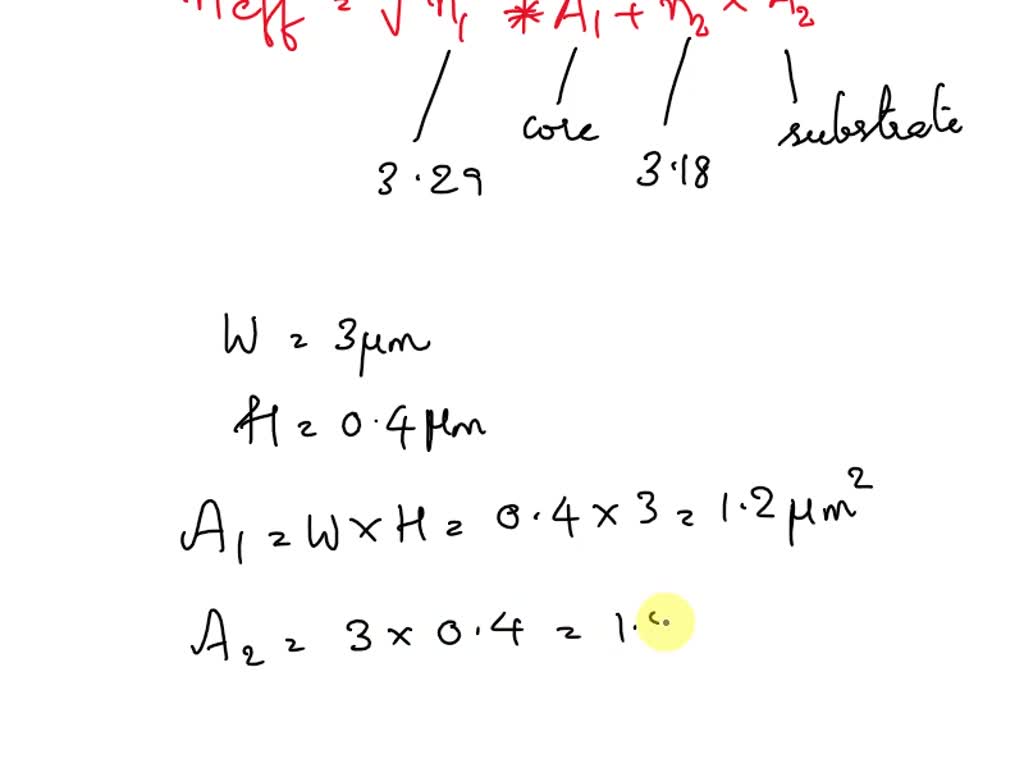 neff = √n₁ * A₁ + n₂ × A₂
core substrate
3.29 3.18
W = 3μm
H = 0.4 μm
A₁ = W × H = 0.4 × 3 = 1.2 μm²
A₂ = 3 × 0.4 = 1.